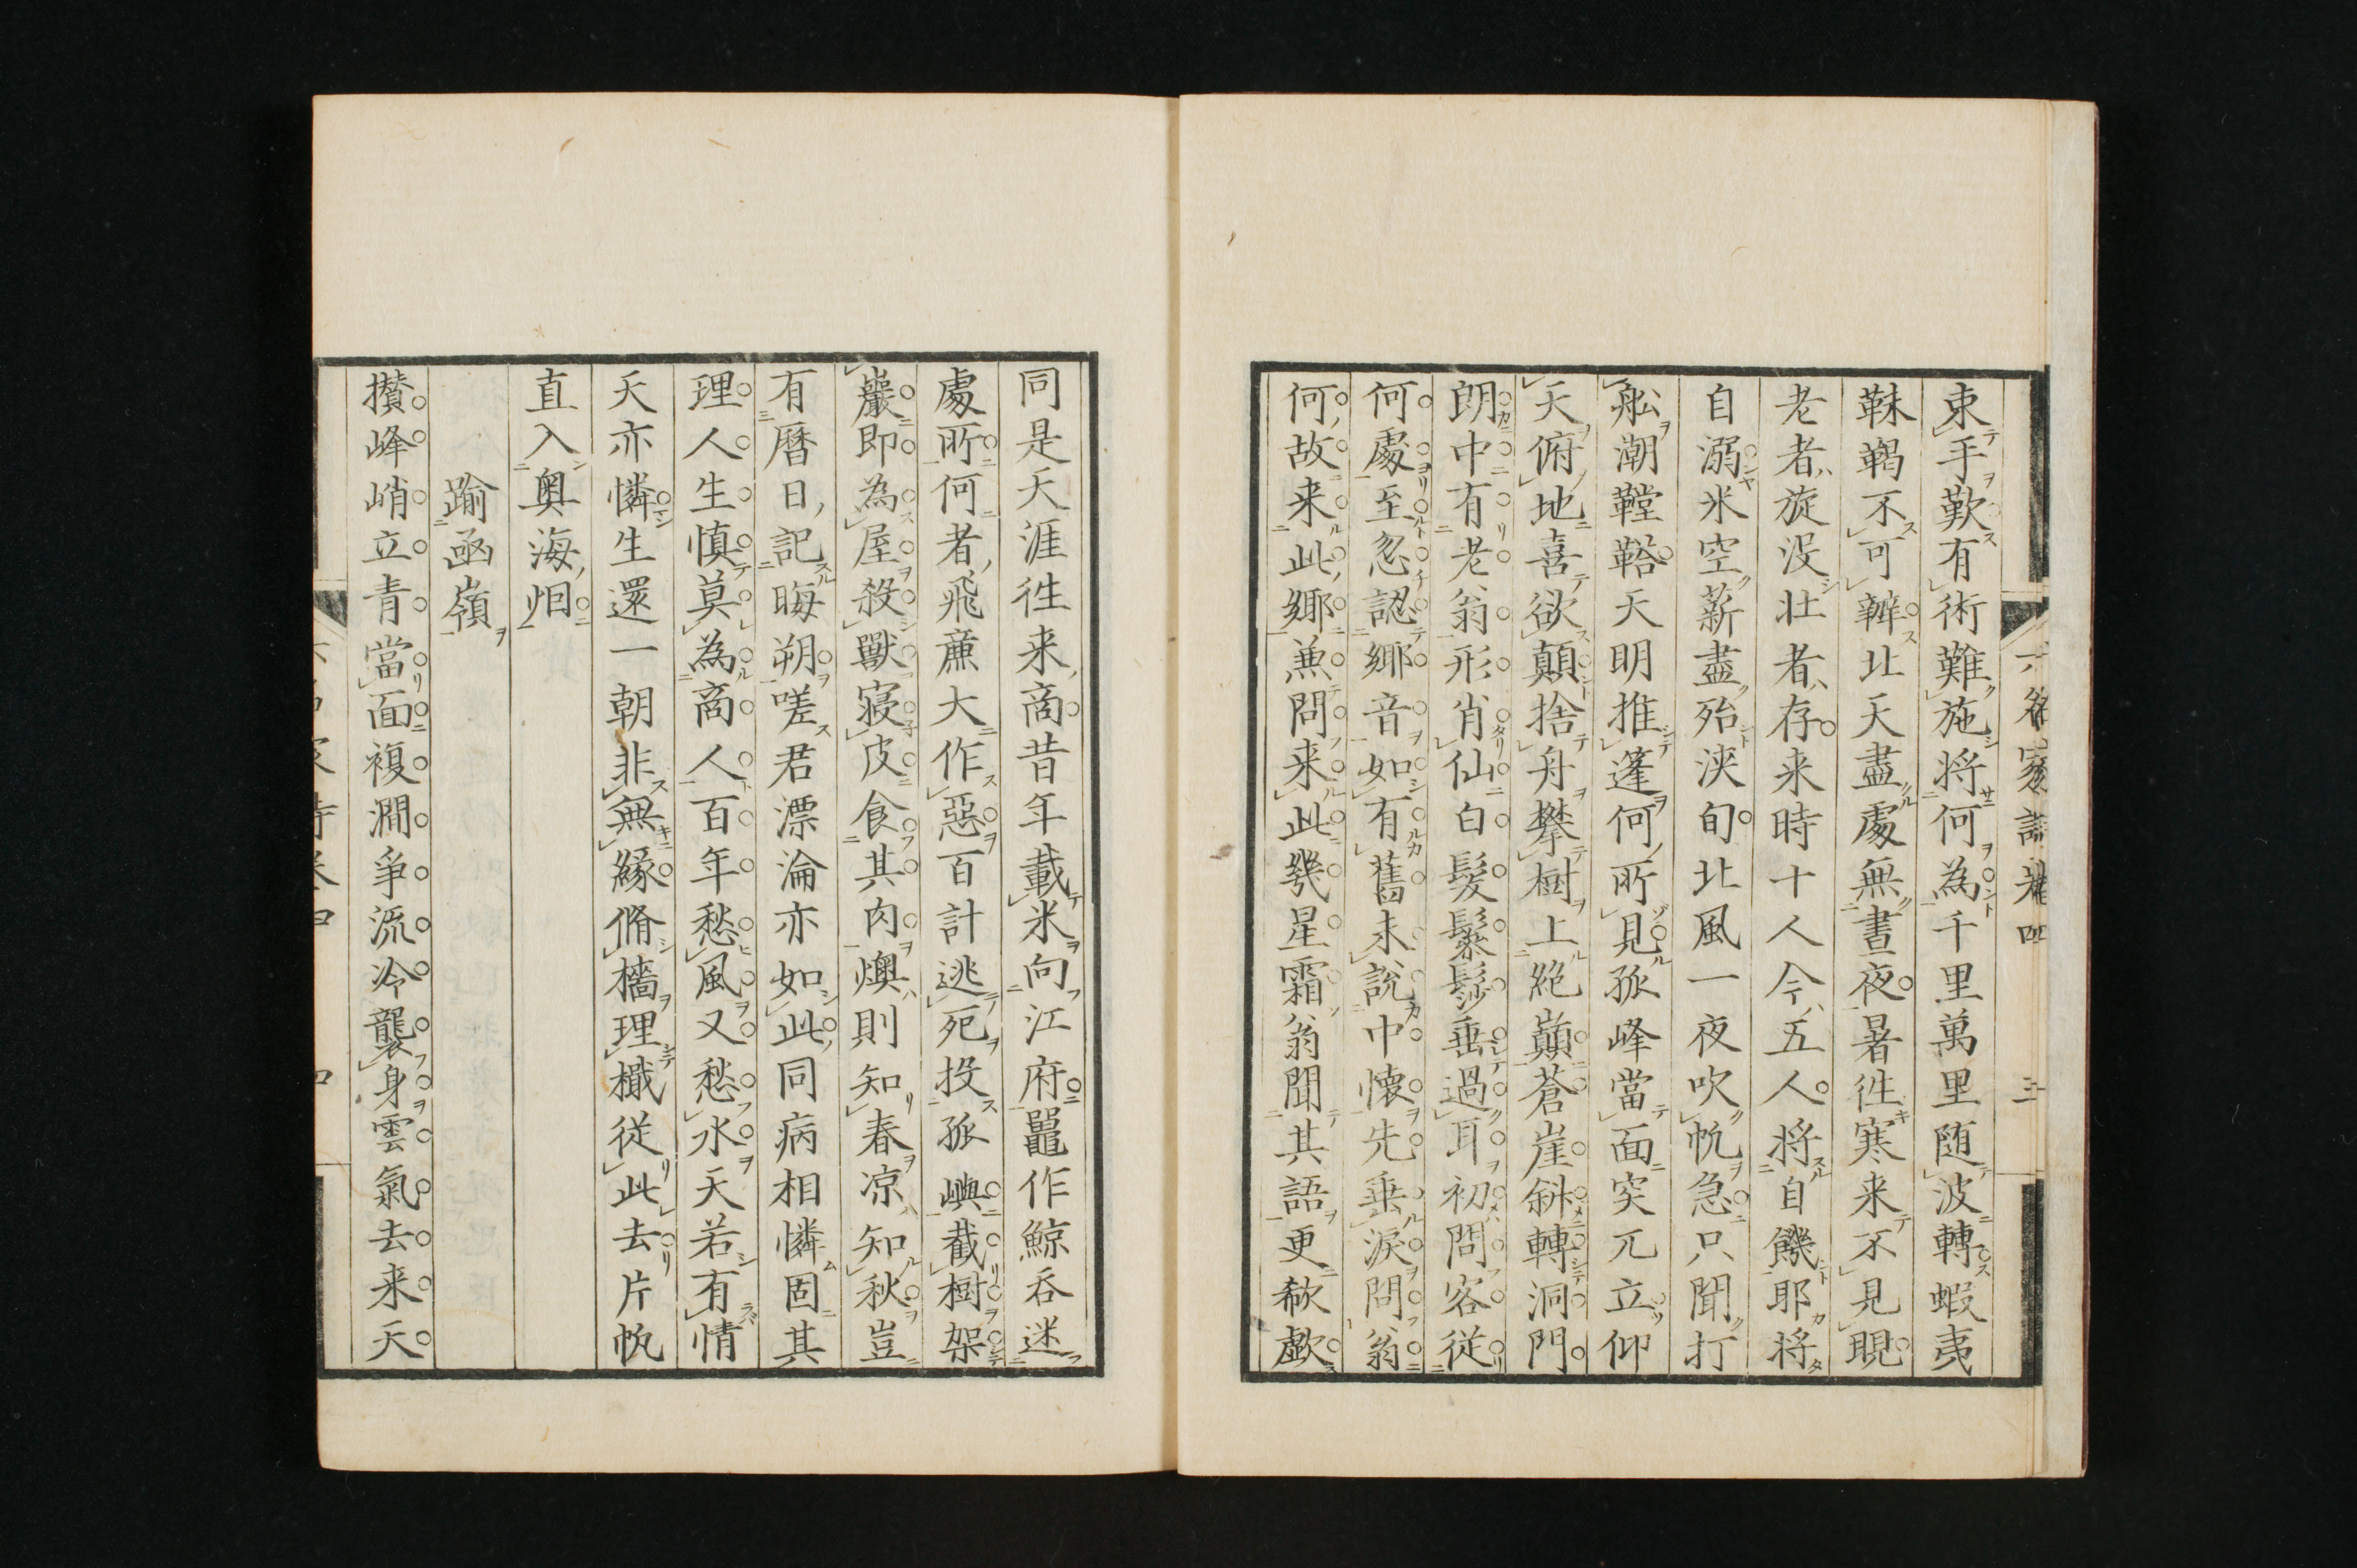 束手歎有術難施将何為千里萬里随波轉蝦夷
靺鞨不可辨北天盡處無晝夜暑徃寒来不見晛
老者旋没壮者存来時十人今五人将自饑耶将
自溺米空薪盡殆浹旬北風一夜吹帆急只聞打
舩潮鞺鞳天明推篷何所見孤峰當面突兀立仰
天俯地喜欲顛捨舟攀樹上絶巓蒼崖斜轉洞門
朗中有老翁形肖仙白髪鬖髿垂過耳初問客従
何處至忽認郷音如有舊未説中懐先垂涙問翁
何故来此郷兼問来此幾星霜翁聞其語更欷歔
同是天涯徃来商昔年載米向江府鼉作鯨呑迷
處所何者飛廉大作惡百計逃死投孤嶼截樹架
巖即為屋殺獸寝皮食其肉燠則知春凉知秋豈
有暦日記晦朔嗟君漂淪亦如此同病相憐固其
理人生慎莫為商人百年愁風又愁水天若有情
天亦憐生還一朝非無縁脩檣理檝従此去片帆
直入奥海烟
踰凾嶺
攅峰峭立青當面複澗争流冷襲身雲氣去来天